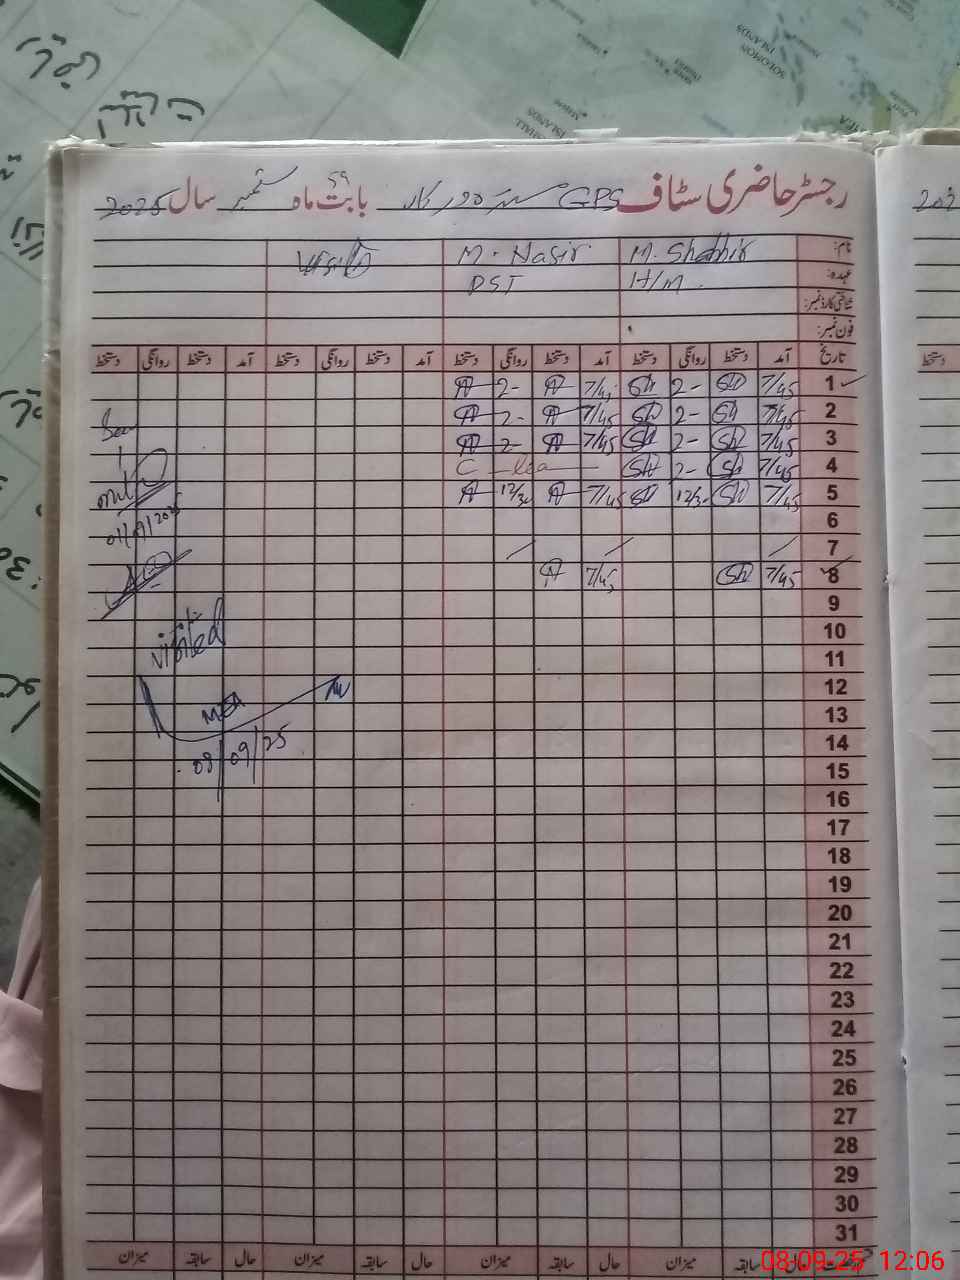 رجسٹر حاضری سٹاف GPS بابت ماه ستمبر سال 2025
نام: M. Shabbir M. Nasir
عہدہ: H/M. PST
شناختی کارڈ نمبر:
فون نمبر:
تاریخ آمد دستخط روانگی دستخط آمد دستخط روانگی دستخط آمد دستخط روانگی دستخط آمد دستخط روانگی دستخط
1 7/45 Sh 2- Sh 7/45 A 2- A
2 7/45 Sh 2- Sh 7/45 A 2- A
3 7/45 Sh 2- Sh 7/45 A 2- A
4 7/45 Sh 2- Sh C- Lea
5 7/45 Sh 12/30 Sh 7/45 A 12/30 A
6
7
8 7/45 Sh 7/45 A
9
10
11
12
13
14
15
16
17
18
19
20
21
22
23
24
25
26
27
28
29
30
31
حال سابقہ میزان حال سابقہ میزان حال سابقہ میزان حال سابقہ میزان
01/09/2025
visited
MEA
08/09/25
دستخط
SOLOMON
ISLANDS
ISLANDS
08-09-25 12:06